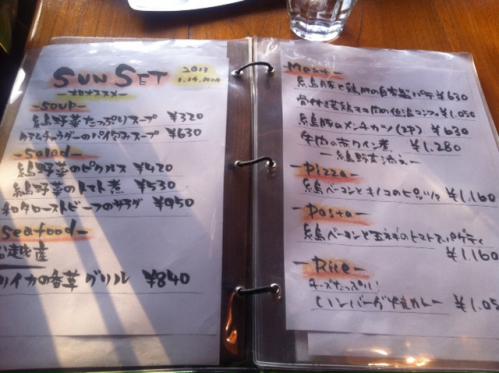 SUNSET 2013
-オススメ-
-SOUP-
糸島野菜たっぷりスープ ¥320
クラムチャウダーのパイ包みスープ ¥630
-Salad-
糸島野菜のピクルス ¥420
糸島野菜のトマト煮 ¥530
和牛ローストビーフのサラダ ¥950
Seafood-
直
イカの香草グリル ¥840
-Meat-
糸島豚と鶏肉の自家製パテ ¥630
骨付 ¥1,050
糸島豚のメンチカツ (2P) ¥630
牛肉の赤ワイン煮 ¥1,280
-糸島野菜添え-
-Pizza-
糸島ベーコンとキノコのピッツァ ¥1,160
-Pasta-
糸島ベーコンと玉ねぎのトマトスパゲティ
¥1,160
-Rice-
チーズたっぷり!
ハンバーグ焼カレー ¥1,0